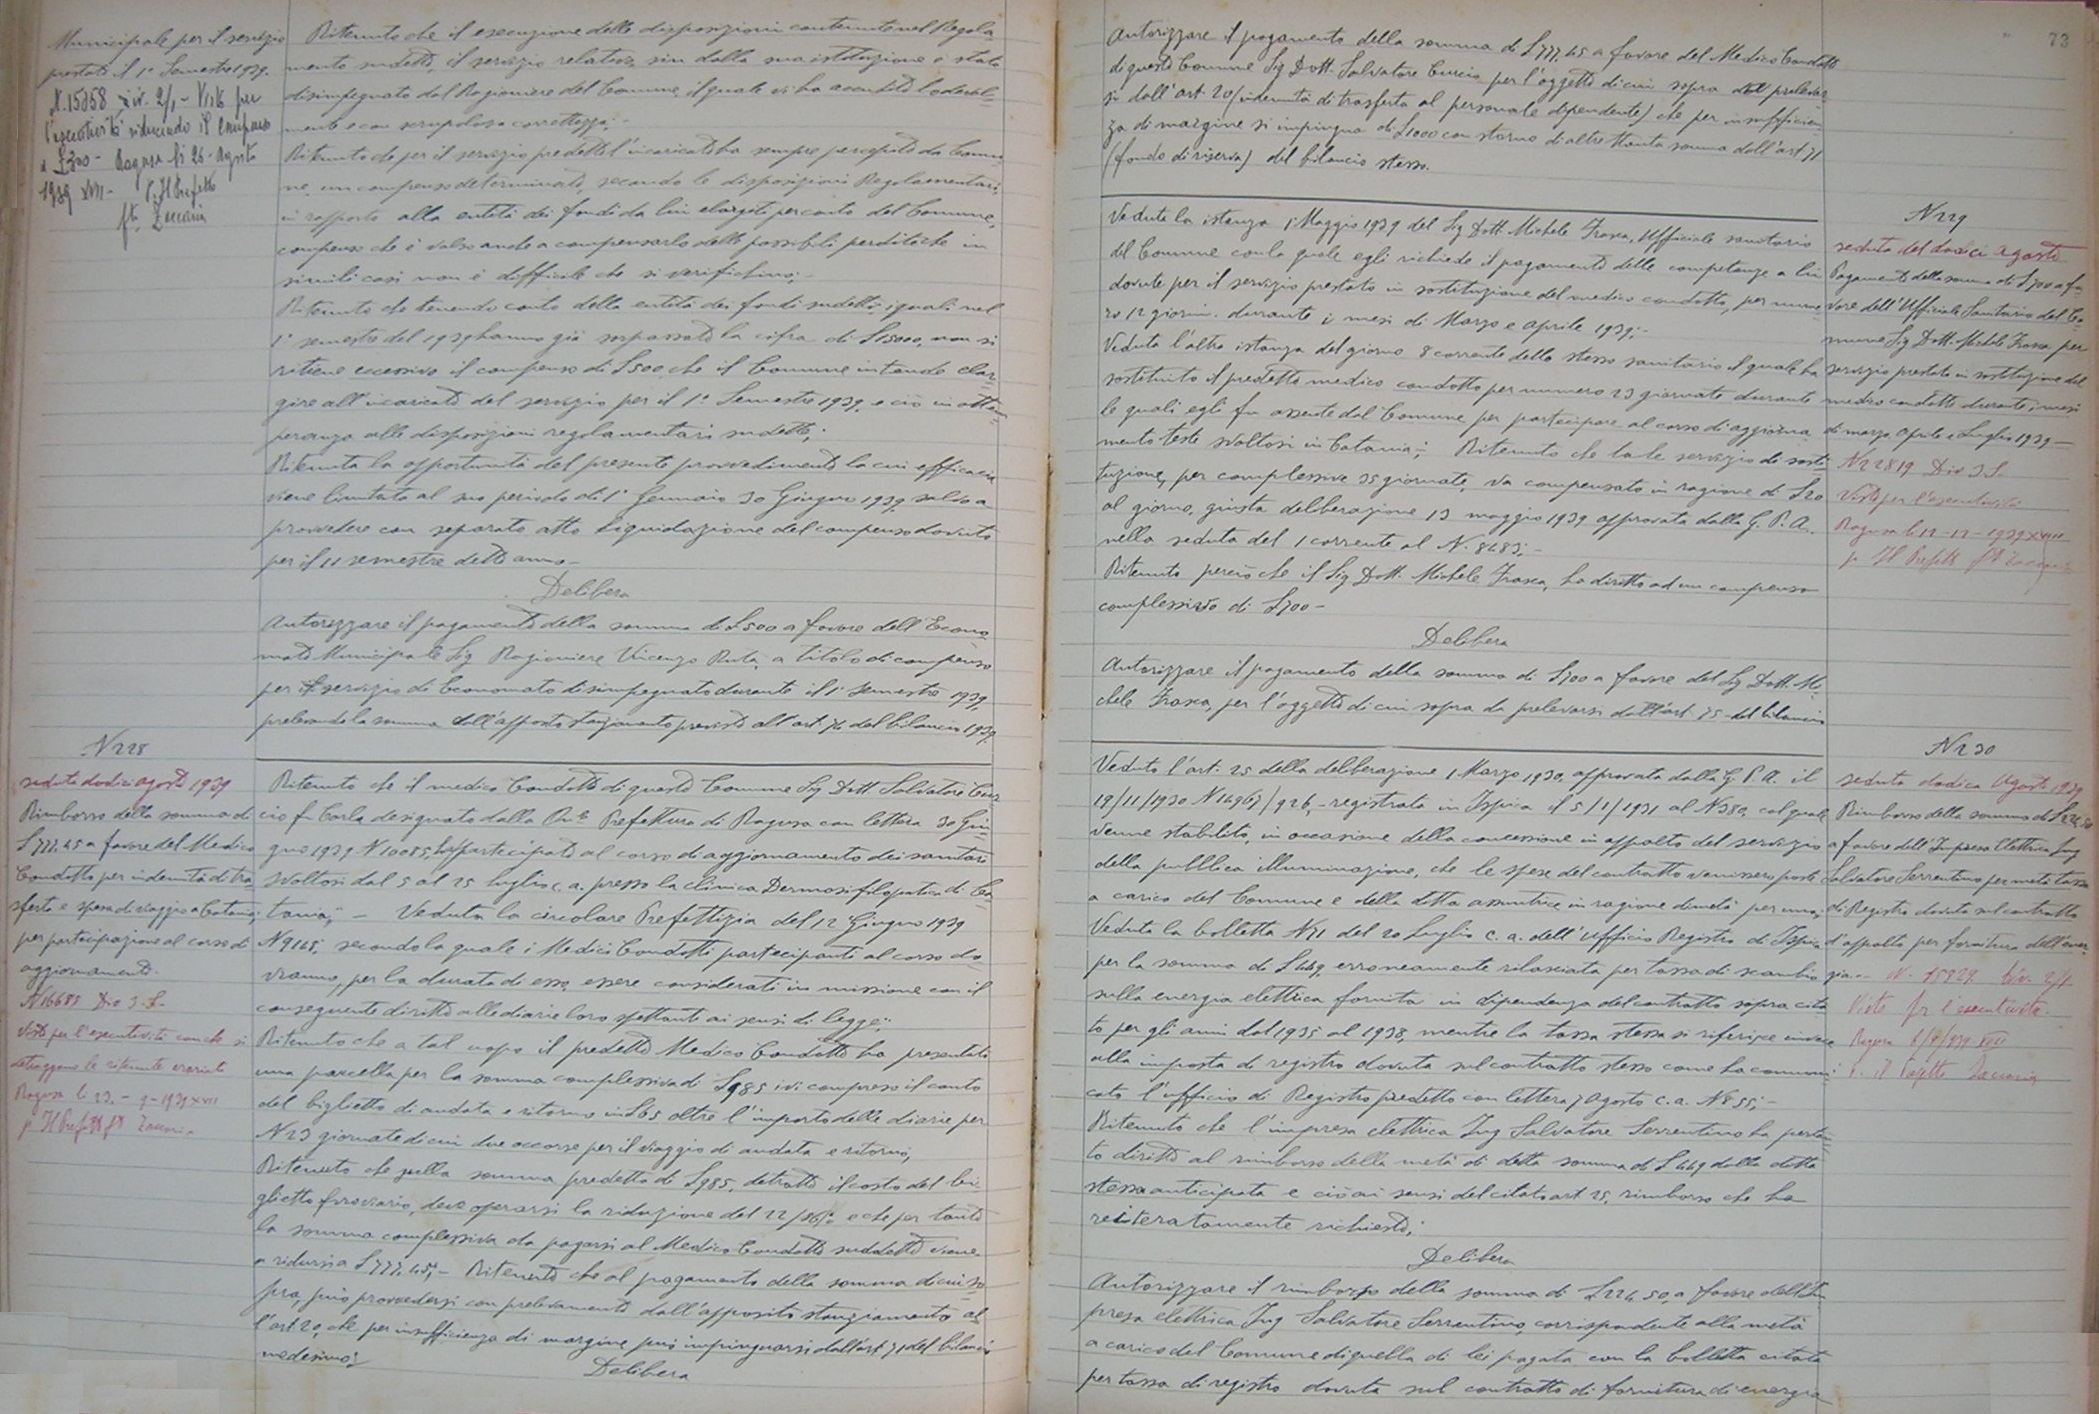 Municipale per il servizio
prestato il 1° Semestre 1939.
N. 15858 Div. 2/1 - Visto per
l'esecutività riducendo il compenso
a £300 - Ragusa lì 26 - Agosto
1939 XVII - p. Il Prefetto
fto Zaccaria
Ritenuto che il esecuzione delle disposizioni contenute nel Regola
mento sudetto, il servizio relativo, sin dalla sua istituzione è stato
disimpegnato dal Ragioniere del Comune, il quale vi ha accudito lodevol-
mente e con scrupolosa correttezza;-
Ritenuto che per il servizio predetto l'incaricato ha sempre percepito da Comu
ne, un compenso determinato, secondo le disposizioni Regolamentari,
in rapporto alla entità dei fondi da lui elargiti per conto del Comune,
compenso che è valso anche a compensarlo delle possibili perdite che in
simili casi non è difficile che si verifichino;-
Ritenuto che tenendo conto della entità dei fondi sudetti, i quali nel
1° semestre del 1939 hanno già sorpassato la cifra di £15000, non si
ritiene eccessivo il compenso di £500 che il Comune intende elar-
gire all'incaricato del servizio per il 1° Semestre 1939, e ciò in ottem
peranza alle disposizioni regolamentari sudette;
Ritenuta la opportunità del presente provvedimento la cui efficacia
viene limitata al suo periodo di 1° Gennaio 30 Giugno 1939, salvo a
provvedere con separato atto liquidazione del compenso dovuto
per il II semestre detto anno-
Delibera
Autorizzare il pagamento della somma di £500 a favore dell'Econo
mato Municipale Sig Ragioniere Vincenzo Rutà, a titolo di compenso
per il servizio di Economato disimpegnato durante il 1° Semestre 1939
prelevando la somma dall'apposito stanziamento previsto all'art. 14 del bilancio 1939.
N 228
seduta dodici agosto 1939
Rimborso della somma di
£777,45 a favore del Medico
Condotto per indennità di tra
sferta e spese di viaggio a Catania
per partecipazione al corso di
aggiornamento.
N 16685 Div 3 S.
Visto per l'esecutività con che si
detraggano le ritenute erariali
Ragusa lì 23 - 9 - 1939 XVII
p Il Prefetto fto Zaccaria
Ritenuto che il medico Condotto di questo Comune Sig. Dott Salvatore Cur
cio fu Carlo, designato dalla On.le Prefettura di Ragusa con lettera 30 Giu
gno 1939 N 10085, ha partecipato al corso di aggiornamento dei sanitari
svoltosi dal 5 al 25 luglio c. a. presso la clinica Dermosifilopatica di Ca
tania;- Veduta la circolare Prefettizia del 12 Giugno 1939
N 9145, secondo la quale i Medici Condotti partecipanti al corso do
vranno, per la durata di esso, essere considerati in missione con il
conseguente diritto alle diarie loro spettanti ai sensi di legge;
Ritenuto che a tal uopo il predetto Medico Condotto ha presentato
una parcella per la somma complessiva di £985 ivi compreso il conto
del biglietto di andata e ritorno in £65 oltre l'importo delle diarie per
N 23 giornate di cui due occorse per il viaggio di andata e ritorno;
Ritenuto che sulla somma predetta di £985, detratto il costo del bi-
glietto ferroviario, deve operarsi la riduzione del 22/56% e che per tanto
la somma complessiva da pagarsi al Medico Condotto suddetto viene
a ridursi a £777,45;- Ritenuto che al pagamento della somma di cui so
pra, può provvedersi con prelevamento dall'apposito stanziamento al
l'art 20, che per insufficienza di margine può impinguarsi dall'art 71 del bilancio
medesimo;
Delibera
73
Autorizzare il pagamento della somma di £777,45 a favore del Medico Condotto
di questo Comune Sig Dott. Salvatore Curcio per l'oggetto di cui sopra da prelevar
si dall'art 20 (indennità di trasferta al personale dipendente) che per insufficien
za di margine si impingua di £1000 con storno di altrettanta somma dall'art 71
(fondo di riserva) del bilancio stesso.
Veduta la istanza 1 Maggio 1939 del Sig Dott. Michele Frasca, Ufficiale sanitario
del Comune con la quale egli richiede il pagamento delle competenze a lui
dovute per il servizio prestato in sostituzione del medico condotto, per nume
ro 12 giorni durante i mesi di Marzo e aprile 1939;-
Veduta l'altra istanza del giorno 8 corrente dello stesso sanitario il quale ha
sostituito il predetto medico condotto per numero 23 giornate durante
le quali egli fu assente dal Comune per partecipare al corso di aggiorna
mento testè svoltosi in Catania;- Ritenuto che tale servizio di sosti
tuzione, per complessive 35 giornate, va compensato in ragione di £20
al giorno, giusta deliberazione 13 maggio 1939 approvata dalla G. P. A.
nella seduta del 1 corrente al N. 8683;-
Ritenuto perciò che il Sig Dott. Michele Frasca, ha diritto ad un compenso
complessivo di £700-
Delibera
Autorizzare il pagamento della somma di £700 a favore del Sig Dott. Mi
chele Frasca, per l'oggetto di cui sopra da prelevarsi dall'art. 75 del bilancio
N 229
seduta del dodici agosto
Pagamento della somma di £700 a fa
vore dell'Ufficiale Sanitario del Co
mune Sig Dott. Michele Frasca per
servizio prestato in sostituzione del
medico condotto durante i mesi
di marzo aprile e Luglio 1939-
N 22819 Div 3 S.
Visto per l'esecutività
Ragusa lì 12 - 12 - 1939 XVIII
p Il Prefetto fto Zaccaria
Veduto l'art. 25 della deliberazione 1 Marzo 1930, approvata dalla G. P. A. il
19/11/1930 N 14967/926,- registrata in Ispica il 5/1/1931 al N 380, col quale
venne stabilito, in occasione della concessione in appalto del servizio
della pubblica illuminazione, che le spese del contratto venissero poste
a carico del Comune e della ditta assuntrice in ragione di metà per uno;
Veduta la bolletta N 71 del 20 Luglio c. a. dell'Ufficio Registro di Ispica
per la somma di £449 erroneamente rilasciata per tassa di scambio
sulla energia elettrica fornita in dipendenza del contratto sopra cita
to per gli anni dal 1935 al 1938, mentre la tassa stessa si riferisce invece
alla imposta di registro dovuta sul contratto stesso come ha comuni
cato l'ufficio di Registro predetto con lettera 7 Agosto c. a. N 855;-
Ritenuto che l'impresa elettrica Ing Salvatore Serrentino ha pertan
to diritto al rimborso della metà di detta somma di £449 dalla ditta
stessa anticipata e ciò ai sensi del citato art 25, rimborso che ha
reiteratamente richiesto;
Delibera
Autorizzare il rimborso della somma di £224,50, a favore dell'Im
presa elettrica Ing Salvatore Serrentino, corrispondente alla metà
a carico del Comune di quella di lei pagata con la bolletta citata
per tassa di registro dovuta sul contratto di fornitura di energia
N 230
seduta dodici Agosto 1939
Rimborso della somma di £224,50
a favore dell'Impresa Elettrica Ing
Salvatore Serrentino per metà tassa
di Registro dovuta sul contratto
d'appalto per fornitura dell'ener
gia - N. 15829 Div. 2/1
Visto per l'esecutività.
Ragusa 8/9/939 XVII
p. Il Prefetto Zaccaria